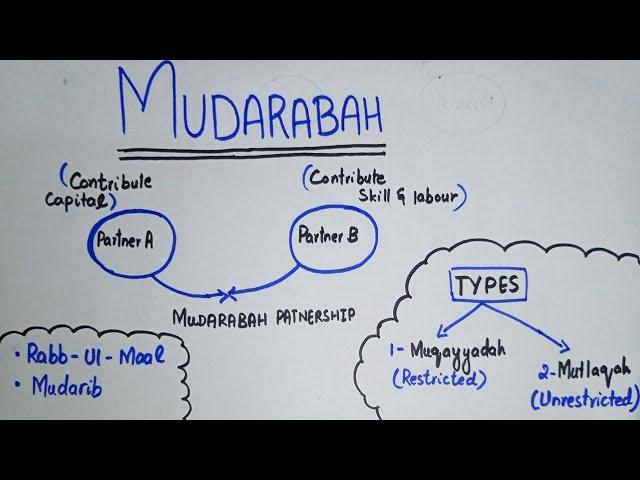 MUDARABAH
(Contribute
Capital)
(Contribute
Skill & labour)
Partner A
Partner B
MUDARABAH PATNERSHIP
• Rabb-Ul-Maal
• Mudarib
TYPES
1- Muqayyadah
(Restricted)
2- Mutlaqah
(Unrestricted)